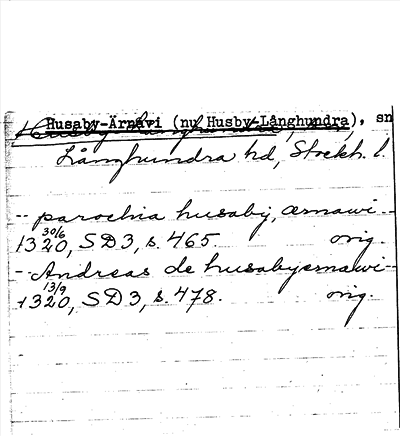 Husaby-Ärnavi (nu Husby-Långhundra), sn
Långhundra hd, Stockh. l.
-- parochia husaby, ærnawi --
1320 30/6, SD 3, s. 465. orig.
-- Andreas de husabyernawi --
1320 13/9, SD 3, s. 478. orig.